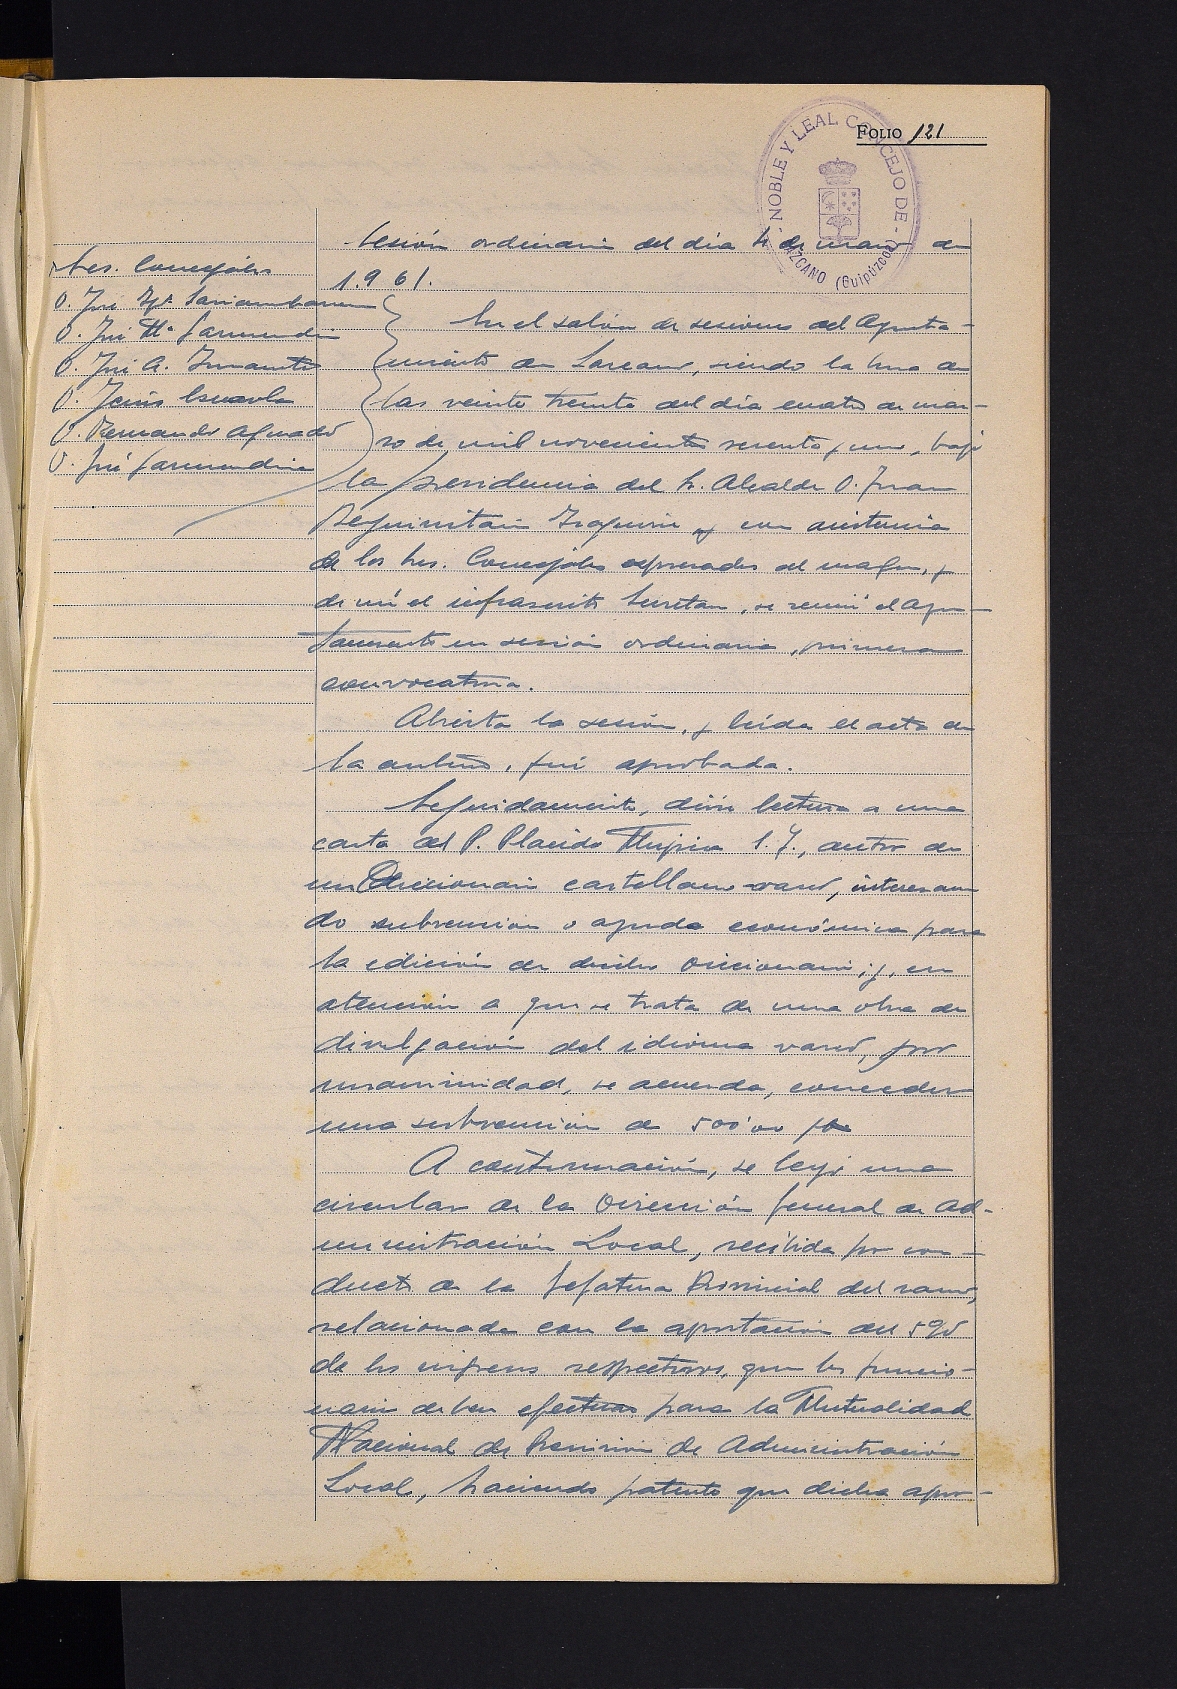 FOLIO 121
NOBLE Y LEAL CONCEJO DE LAZCANO (Guipúzcoa)
Sesión ordinaria del día 4 de marzo de
1.961.
Sres. Concejales
D. José
D. José Mª Garmendia
D. José A.
D. Jesús
D. Bernardo Aguado
D. José Garmendia
En el salón de sesiones del Ayunta-
miento de Lazcano, siendo la hora de
las veinte treinta del día cuatro de mar-
zo de mil novecientos sesenta y uno, bajo
la presidencia del Sr. Alcalde D. Juan
Beguiristain y con asistencia
de los Sres. Concejales expresados al margen, y
de mí el infrascrito Secretario, se reunió el Ayun-
tamiento en sesión ordinaria, primera
convocatoria.
Abierta la sesión, y leída el acta de
la anterior, fué aprobada.
Seguidamente, dióse lectura a una
carta del P. Placido Mujica S.J., autor de
un Diccionario castellano-vasco, interesan
do subvención o ayuda económica para
la edición de dicho Diccionario; y, en
atención a que se trata de una obra de
divulgación del idioma vasco, por
unanimidad, se acuerda, conceder
una subvención de 500'00 pts
A continuación, se leyó una
circular de la Dirección General de Ad-
ministración Local, recibida por con-
ducto de la Jefatura Provincial del ramo,
relacionada con la aportación del 5%
de los ingresos respectivos, que los funcio-
narios deben efectuar para la Mutualidad
Nacional de Previsión de Administración
Local, haciendo patente que dicha apor-